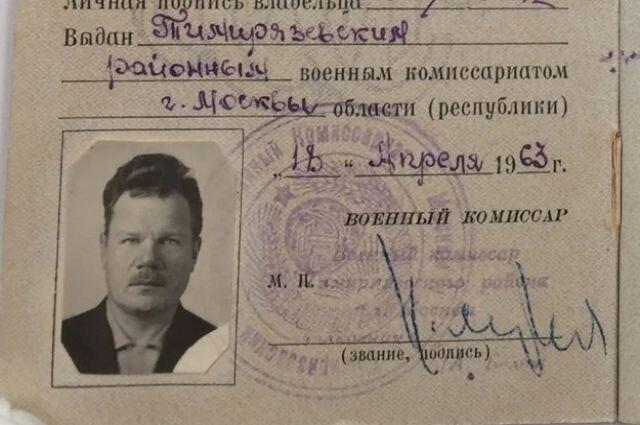 Личная подпись владельца
Выдан Тимирязевским
районным военным комиссариатом
г. Москвы области (республики)
„18 “ Апреля 1963 г.
ВОЕННЫЙ КОМИССАР
Военный комиссар
Тимирязевского района
г. Москвы
М. П.
(звание, подпись)